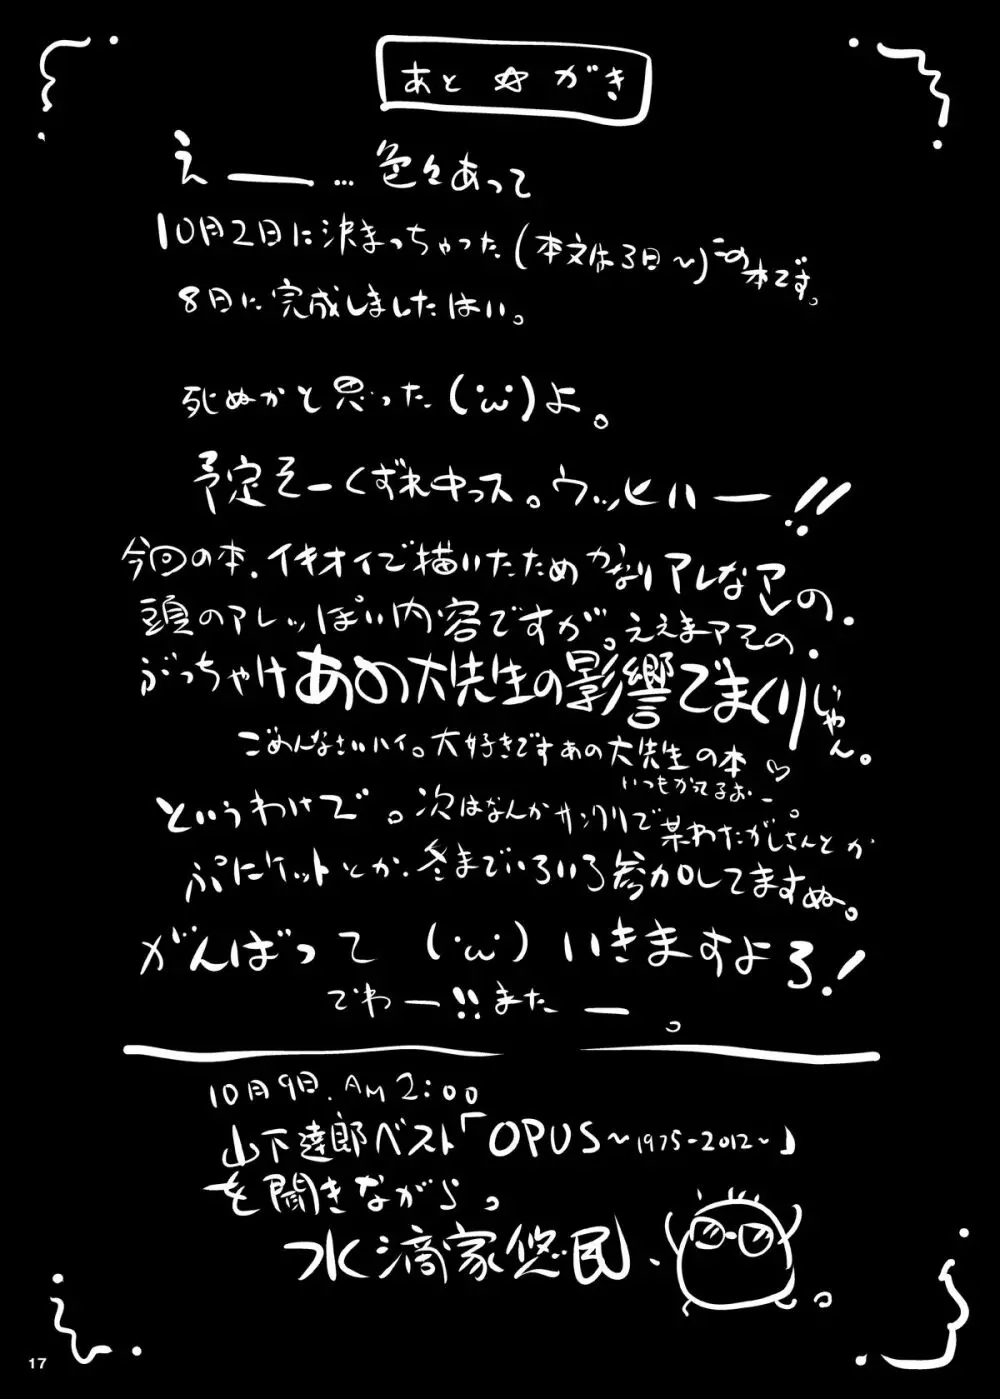 あと☆がき
えー…色々あって
10月2日に決まっちゃった(本文は3日～)この本です。
8日に完成しましたはい。
死ぬかと思った(´・ω・`)よ。
予定そーくずれ中っス。ウッヒハー!!
今回の本、イキオイで描いたためかなりアレなアレの、
頭のアレっぽい内容ですが。ええまアその、
ぶっちゃけあの大先生の影響でまくりじゃん。
ごめんなさいハイ。大好きですあの大先生の本♡
いつもかってるおー。
というわけで。次はなんかサンクリで某わたがしさんとか
ぷにケットとか、冬までいろいろ参加してますぬ。
がんばって(´・ω・`)いきますよろ!
でわー!!またー。
10月9日、AM2:00
山下達郎ベスト「OPUS～1975-2012～」
を聞きながら。
水滴家悠民、
17